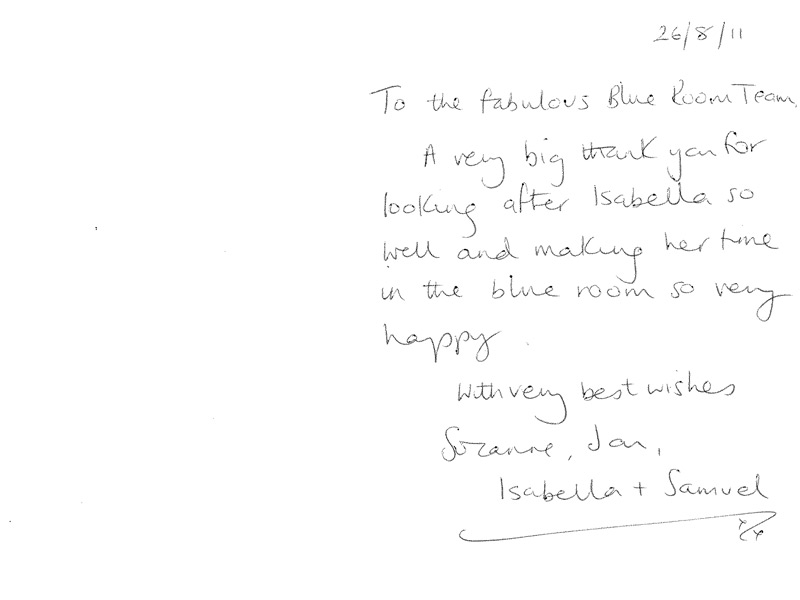 26/8/11
To the fabulous Blue Room Team,
A very big thank you for
looking after Isabella so
well and making her time
in the blue room so very
happy.
With very best wishes
Suzanne, Jan,
Isabella + Samuel
x/x